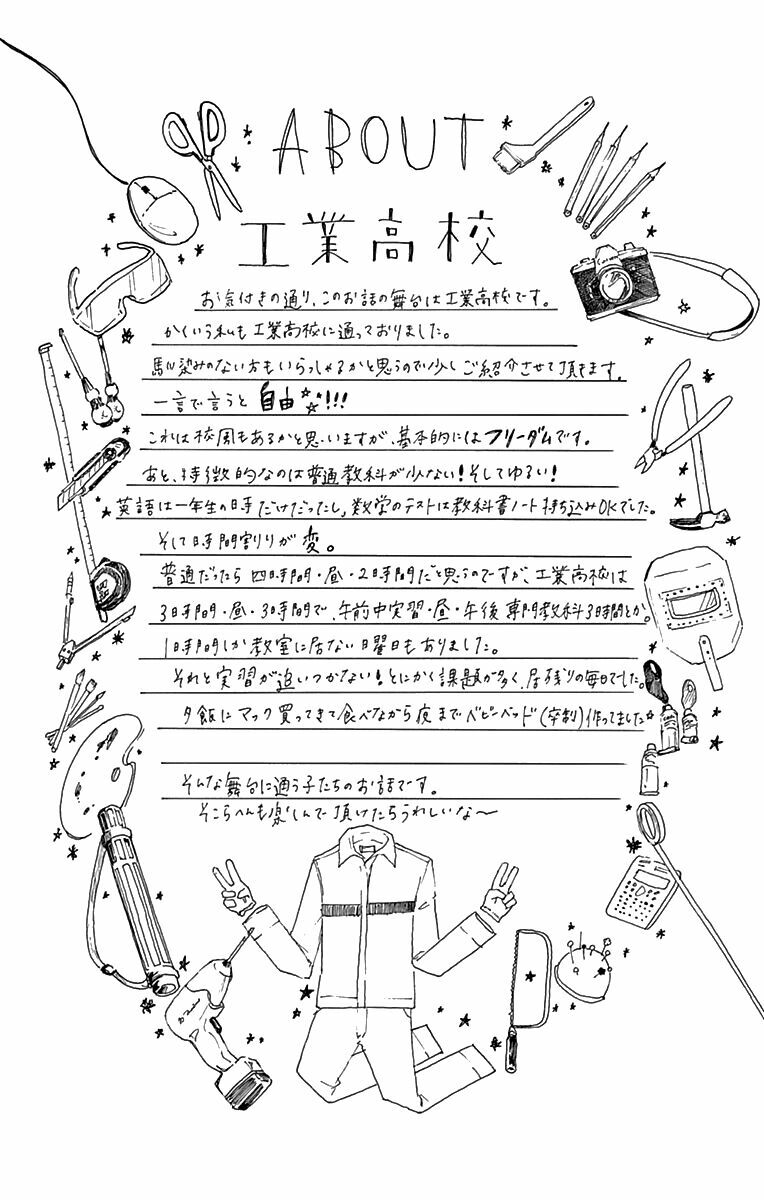 ABOUT
工業高校
お気付きの通り、このお話の舞台は工業高校です。
かくいう私も工業高校に通っておりました。
馴染みのない方もいらっしゃるかと思うので少しご紹介させて頂きます。
一言で言うと自由!!!
これは校風もあるかと思いますが、基本的にはフリーダムです。
あと、特徴的なのは普通教科が少ない!そしてゆるい!
英語は一年生の時だけだったし、数学のテストは教科書ノート持ち込みOKでした。
そして時間割りが変。
普通だったら四時間・昼・2時間だと思うのですが、工業高校は
3時間・昼・3時間で、午前中実習・昼・午後専門教科3時間とか。
1時間しか教室に居ない日曜日もありました。
それと実習が追いつかない!とにかく課題が多く、居残りの毎日でした。
夕飯にマック買ってきて食べながら夜までベビーベッド(卒制)作ってました☆
そんな舞台に通う子たちのお話です。
そこらへんも楽しんで頂けたらうれしいな〜